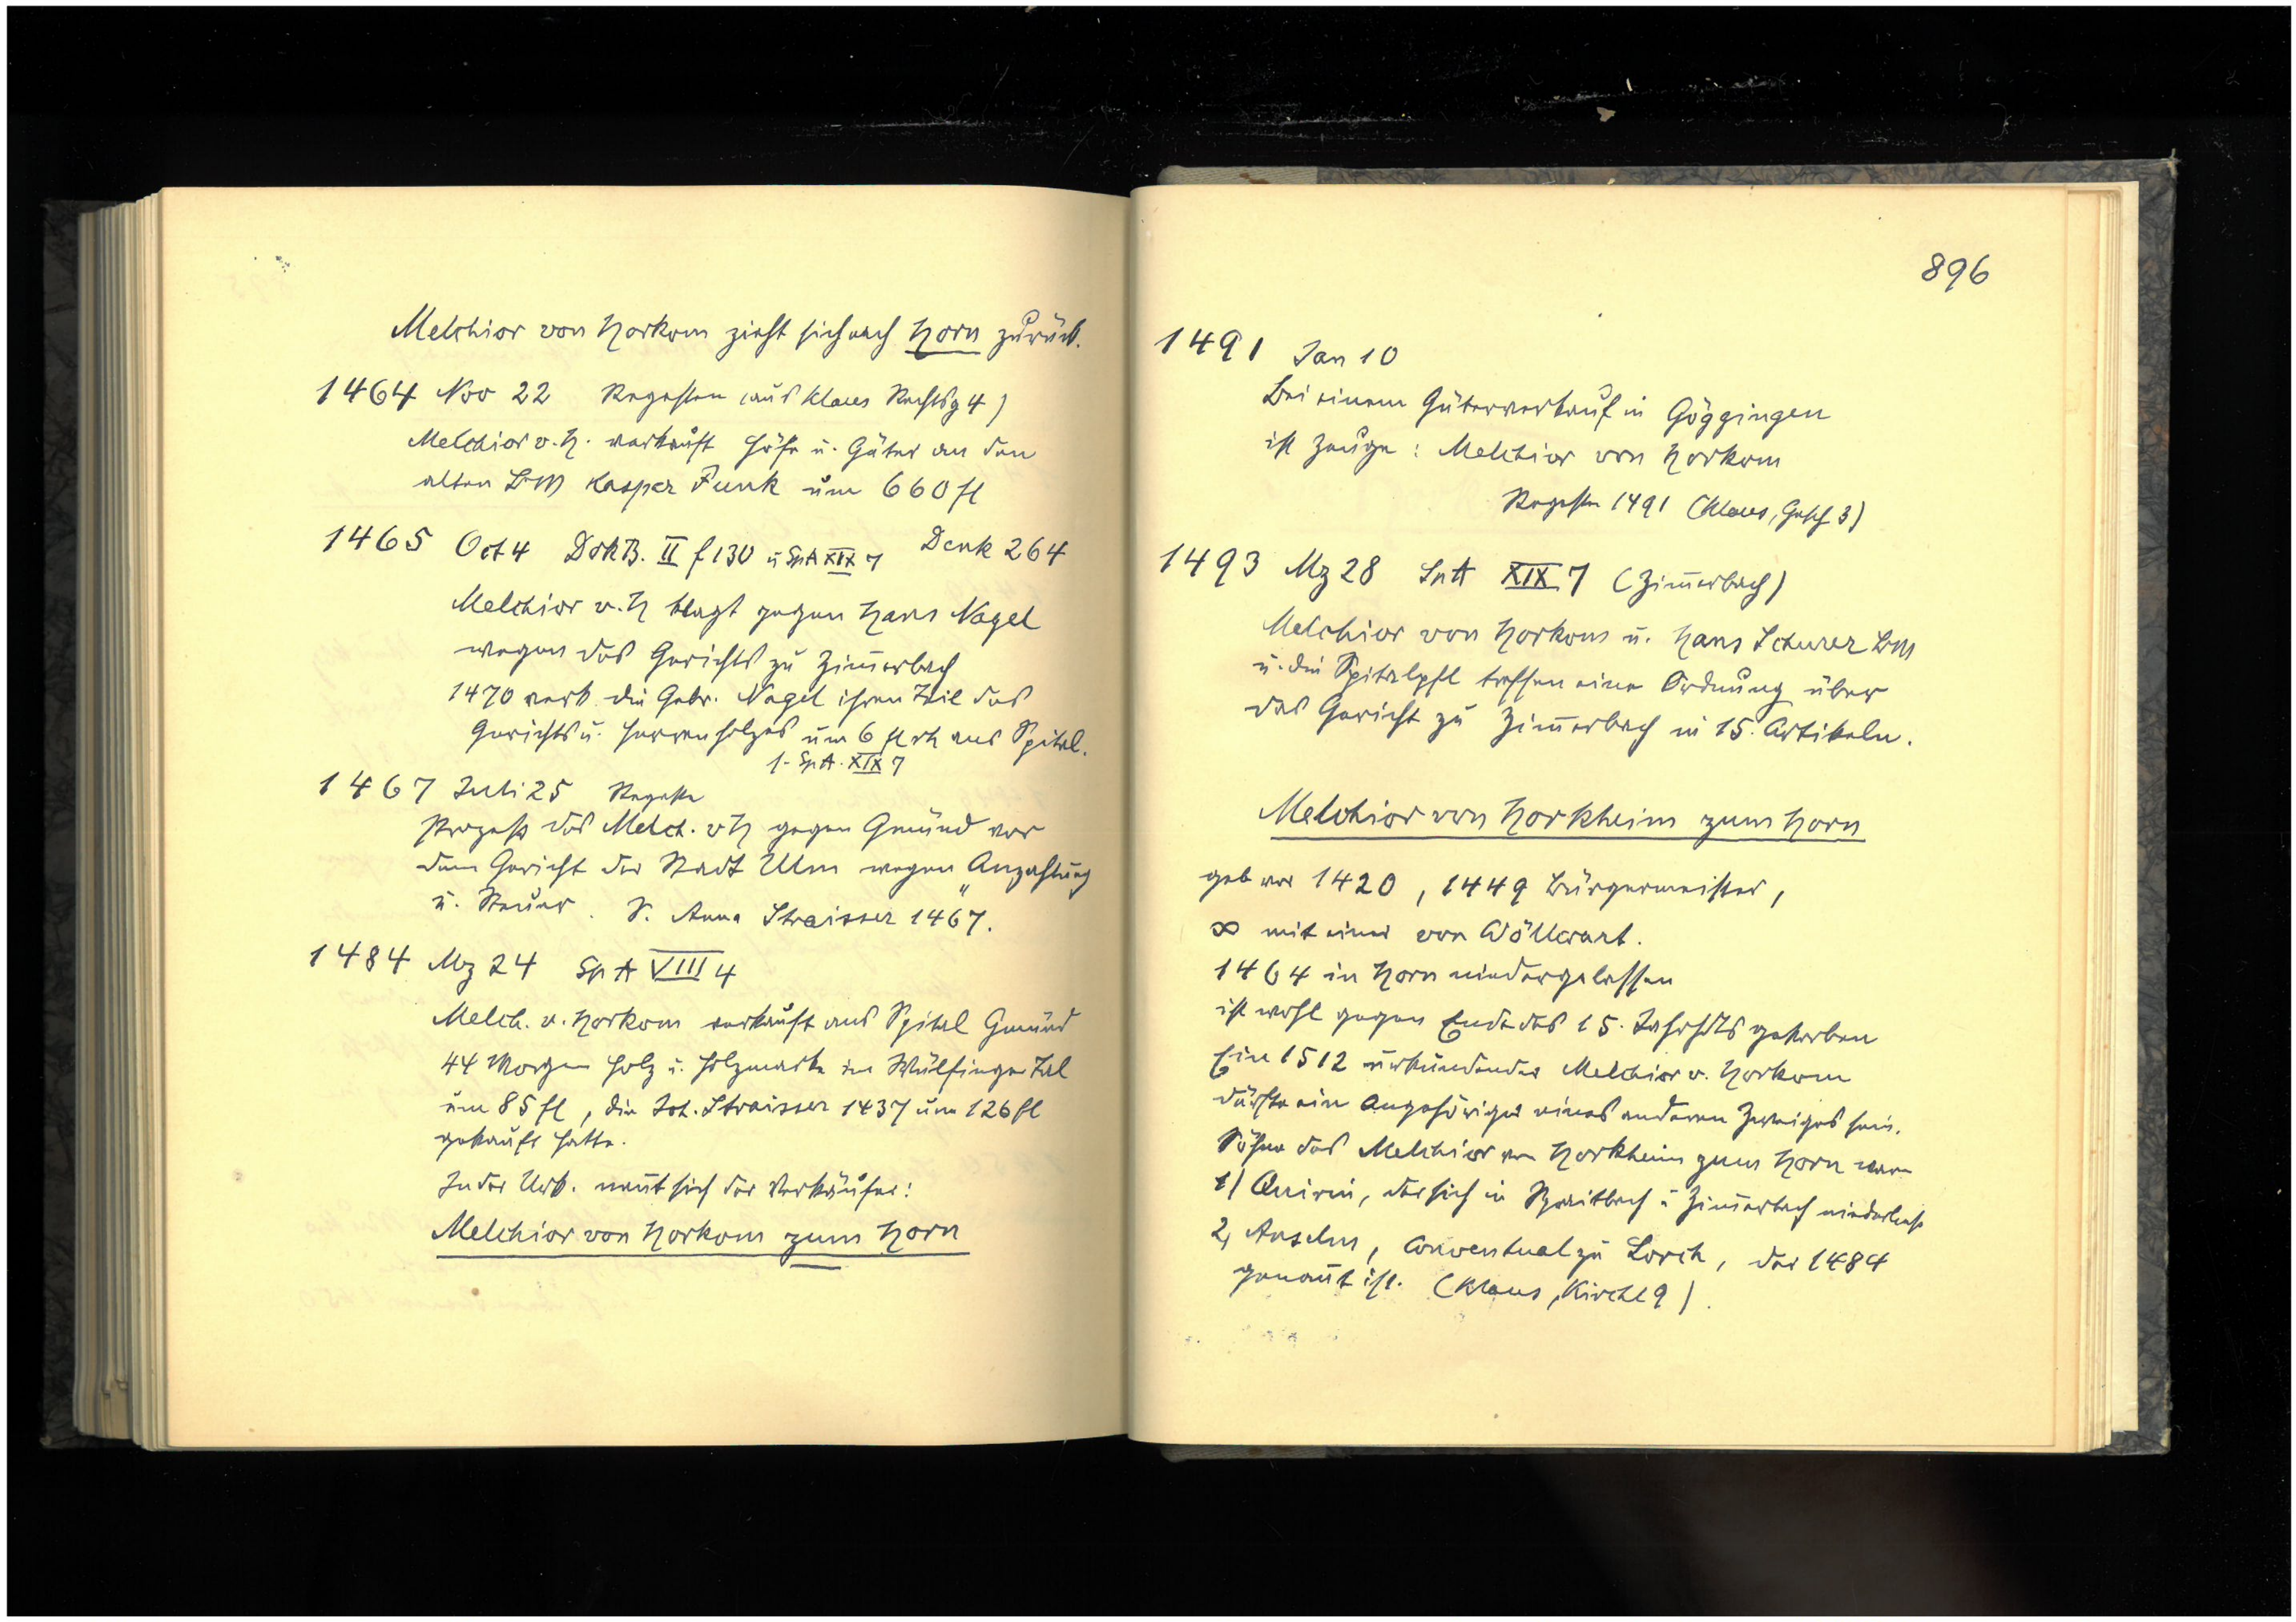 Melchior von Horkom zieht sich nach Horn zurück.
1464 Nov 22 Regesten (aus Klaus Rechtsg 4)
Melchior v. H. verkauft Höfe u. Güter an den
alten BM Kasper Funk um 660 fl
1465 Oct 4 DokB. II f 130 u SpA XIX 7 Denk 264
Melchior v. H klagt gegen Hans Nagel
wegen des Gerichts zu Zim̅erbach
1470 verk. die Gebr. Nagel ihren Teil des
Gerichts u. Herrenholzes um 6 fl rh ans Spital.
f. SpA. XIX 7
1467 Juli 25 Regeste
Prozeß des Melch. v H gegen Gmünd vor
dem Gericht der Stadt Ulm wegen Anzahlung
u. Steuer. S. Anna Straisser 1467.
1484 Mz 24 SpA VIII 4
Melch. v. Horkom verkauft ans Spital Gmünd
44 Morgen Holz u. Holzmarke im Wülfinger Tal
um 85 fl, die Joh. Straisser 1437 um 126 fl
gekauft hatte.
In der Urk. nen̅t sich der Verkäufer:
Melchior von Horkom zum Horn
896
1491 Jan 10
Bei einem Güterverkauf in Göggingen
ist Zeuge: Melchior von Horkom
Regeste 1491 (Klaus, Gesch 3)
1493 Mz 28 SpA XIX 7 (Zim̅erbach)
Melchior von Horkom u. Hans Scheurer BM
u. die Spitalpfl treffen eine Ordnung über
das Gericht zu Zim̅erbach in 15 Artikeln.
Melchior von Horkheim zum Horn
geb vor 1420, 1449 Bürgermeister,
∞ mit einer von Wöllwart.
1464 in Horn niedergelassen
ist wohl gegen Ende des 15. Jahrhdts gestorben
Ein 1512 urkundender Melchior v. Horkom
dürfte ein Angehöriger eines anderen Zweiges sein.
Söhne des Melchior von Horkheim zum Horn waren
1) Quirin, der sich in Spraitbach u Zim̅erbach niederließ
2, Anselm, Conventual zu Lorch, der 1484
genan̅t ist. (Klaus, Kirchl 9).